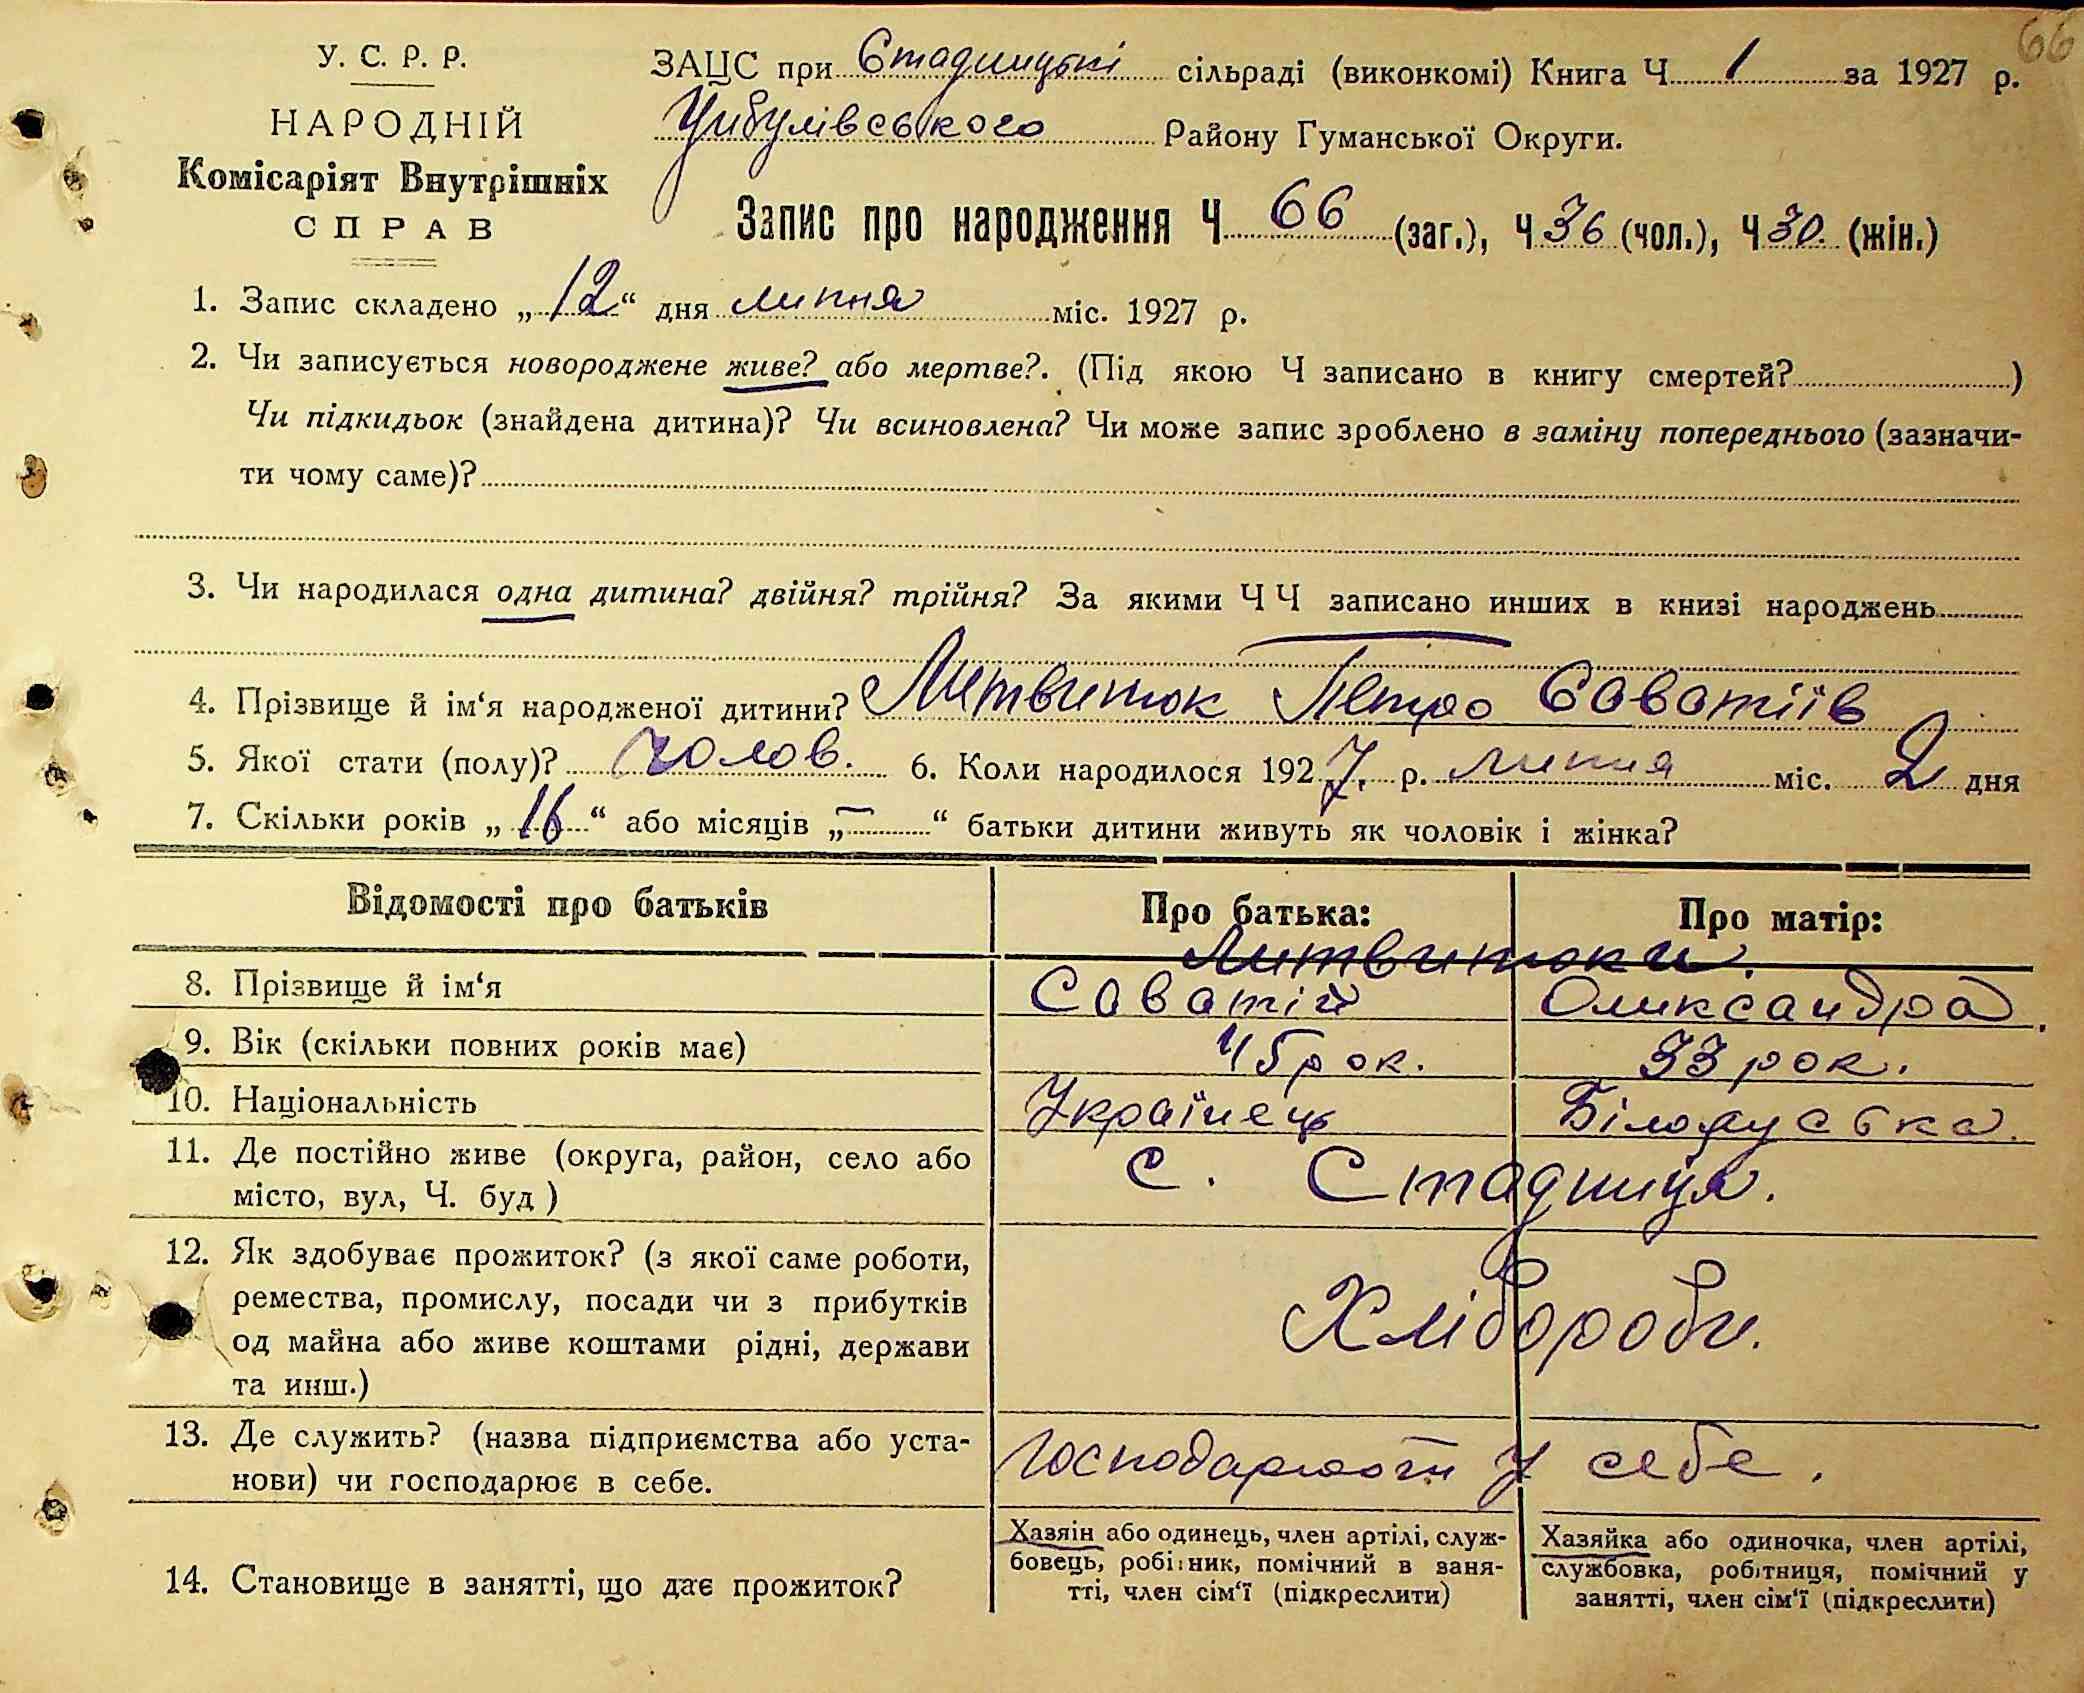 66
У. С. Р. Р.
НАРОДНІЙ
Комісаріят Внутрішніх
СПРАВ
ЗАЦС при Стадницькі сільраді (виконкомі) Книга Ч 1 за 1927 р.
Цибулівського Району Гуманської Округи.
Запис про народження Ч 66 (заг.), Ч 36 (чол.), Ч 30. (жін.)
1. Запис складено „ 12 “ дня липня міс. 1927 р.
2. Чи записується новороджене живе? або мертве?. (Під якою Ч записано в книгу смертей? )
Чи підкидьок (знайдена дитина)? Чи всиновлена? Чи може запис зроблено в заміну попереднього (зазначи-
ти чому саме)?
3. Чи народилася одна дитина? двійня? трійня? За якими Ч Ч записано инших в книзі народжень
4. Прізвище й ім‘я народженої дитини? Литвинюк Петро Саватіїв
5. Якої стати (полу)? чолов. 6. Коли народилося 1927. р. липня міс. 2 дня
7. Скільки років „ 16 “ або місяців „ — “ батьки дитини живуть як чоловік і жінка?
Відомості про батьків Про батька: Про матір:
Литвинюки.
8. Прізвище й ім‘я Саватій Олександра.
9. Вік (скільки повних років має) 45 рок. 33 рок.
10. Національність Українець Білоруська.
11. Де постійно живе (округа, район, село або
місто, вул, Ч. буд ) с. Стадниця.
12. Як здобуває прожиток? (з якої саме роботи,
ремества, промислу, посади чи з прибутків
од майна або живе коштами рідні, держави
та инш.)
Хлібороби.
13. Де служить? (назва підприємства або уста-
нови) чи господарює в себе.
господарюють у себе.
14. Становище в занятті, що дає прожиток?
Хазяін або одинець, член артілі, служ-
бовець, робітник, помічний в заня-
тті, член сім‘ї (підкреслити)
Хазяйка або одиночка, член артілі,
службовка, робітниця, помічний у
занятті, член сім‘ї (підкреслити)